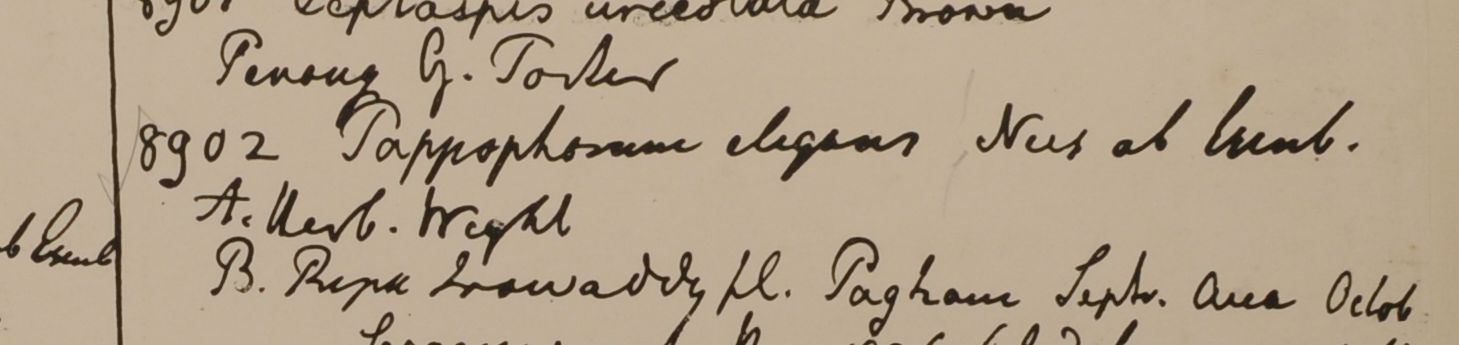 8901 Leptaspis urceolata Brown
Penang G. Porter
8902 Pappophorum elegans Nees ab Esenb.
A. Herb. Wight
b Esenb
B. Ripa Irawaddy fl. Pagham Septr. Ava Octob